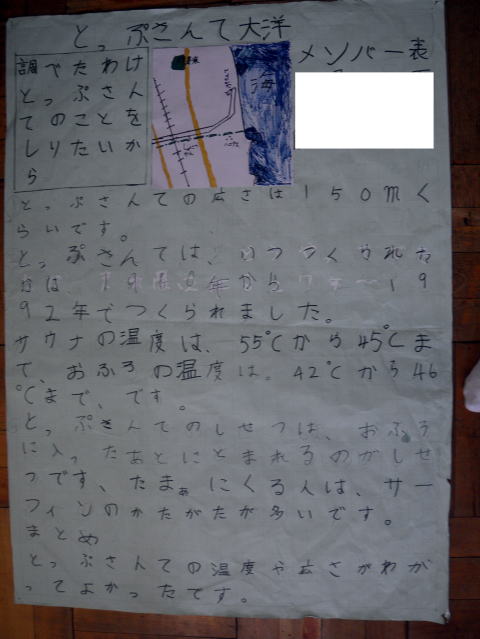 とっぷさんて大洋
メンバー表
調べたわけ
とっぷさん
てのことを
しりたいか
ら
海
とっぷさんての広さは150mく
らいです。
とっぷさんては、いつつくられた
かは、
年から
19
92年でつくられました。
サウナの温度は、55℃から45℃ま
で、おふろの温度は。42℃から46
℃まで、です。
とっぷさんてのしせつは、おふろ
に入ったあとにとまれるのがしせ
つです、たまぁにくる人は、サー
フィンのかたがたが多いです。
まとめ
とっぷさんての温度や広さがわか
ってよかったです。